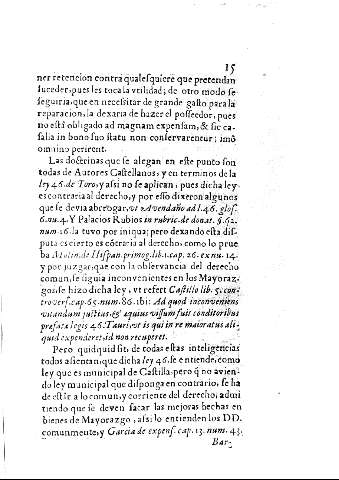 15
ner retencion contra qualesquiere que pretendan
suceder, pues les toca la vtilidad; de otro modo se
seguiria, que en necessitar de grande gasto para la
reparacion, la dexaria de hazer el posseedor, pues
no està obligado ad magnam expensam, & sic ca-
salia in bono suo statu non conservarentur; imò
omnino perirent.
Las doctrinas que se alegan en este punto son
todas de Autores Castellanos, y en terminos de la
ley 46. de Toro, y assi no se aplican, pues dicha ley
es contraria al derecho, y por esso dixeron algunos
que se devia abrogar, vt Avendaño ad l. 46. glos.
6. nu. 4. Y Palacios Rubios in rubric. de donat. §. 62.
num. 16. la tuvo por iniqua; pero dexando esta dis-
puta es cierto es cōtraria al derecho, como lo prue
ba Molin. de Hispan. primog. lib. 1. cap. 26. ex nu. 14.
y por juzgar, que con la observancia del derecho
comun, se siguia inconvenientes en los Mayoraz-
gos, se hizo dicha ley, vt refert Castillo lib. 5. con-
troverf. cap. 65. num. 86. ibi: Ad quod inconveniens
vitandum justius, & æquius visum fuit conditoribus
prefatæ legis 46. Tauri, vt is qui in re maioratus ali-
quid expenderet, id non recuperet.
Pero quidquid sit, de todas estas inteligencias
todos assientan, que dicha ley 46. se entiende, como
ley que es municipal de Castilla, pero q̃ no avien-
do ley municipal que disponga en contrario, se ha
de estàr a lo comun, y corriente del derecho, admi
tiendo que se deven sacar las mejoras hechas en
bienes de Mayorazgo, assi lo entienden los DD.
comunmente, y Garcia de expens. cap. 13. num. 43.
Bar-